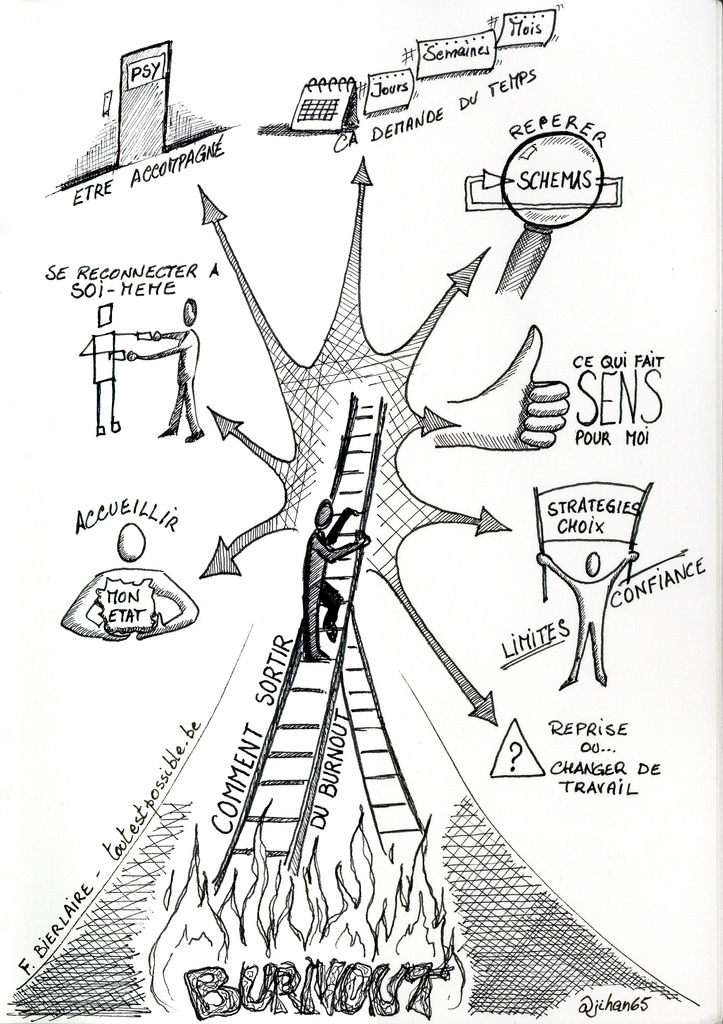 PSY
ETRE ACCOMPAGNÉ
Jours
Semaines
Mois
ÇA DEMANDE DU TEMPS
REPERER
SCHEMAS
SE RECONNECTER A
SOI-MEME
CE QUI FAIT
SENS
POUR MOI
ACCUEILLIR
MON
ETAT
STRATEGIES
CHOIX
LIMITES
CONFIANCE
COMMENT SORTIR
DU BURNOUT
?
REPRISE
OU...
CHANGER DE
TRAVAIL
F. BIERLAIRE - toutestpossible.be
BURNOUT
@jihan65